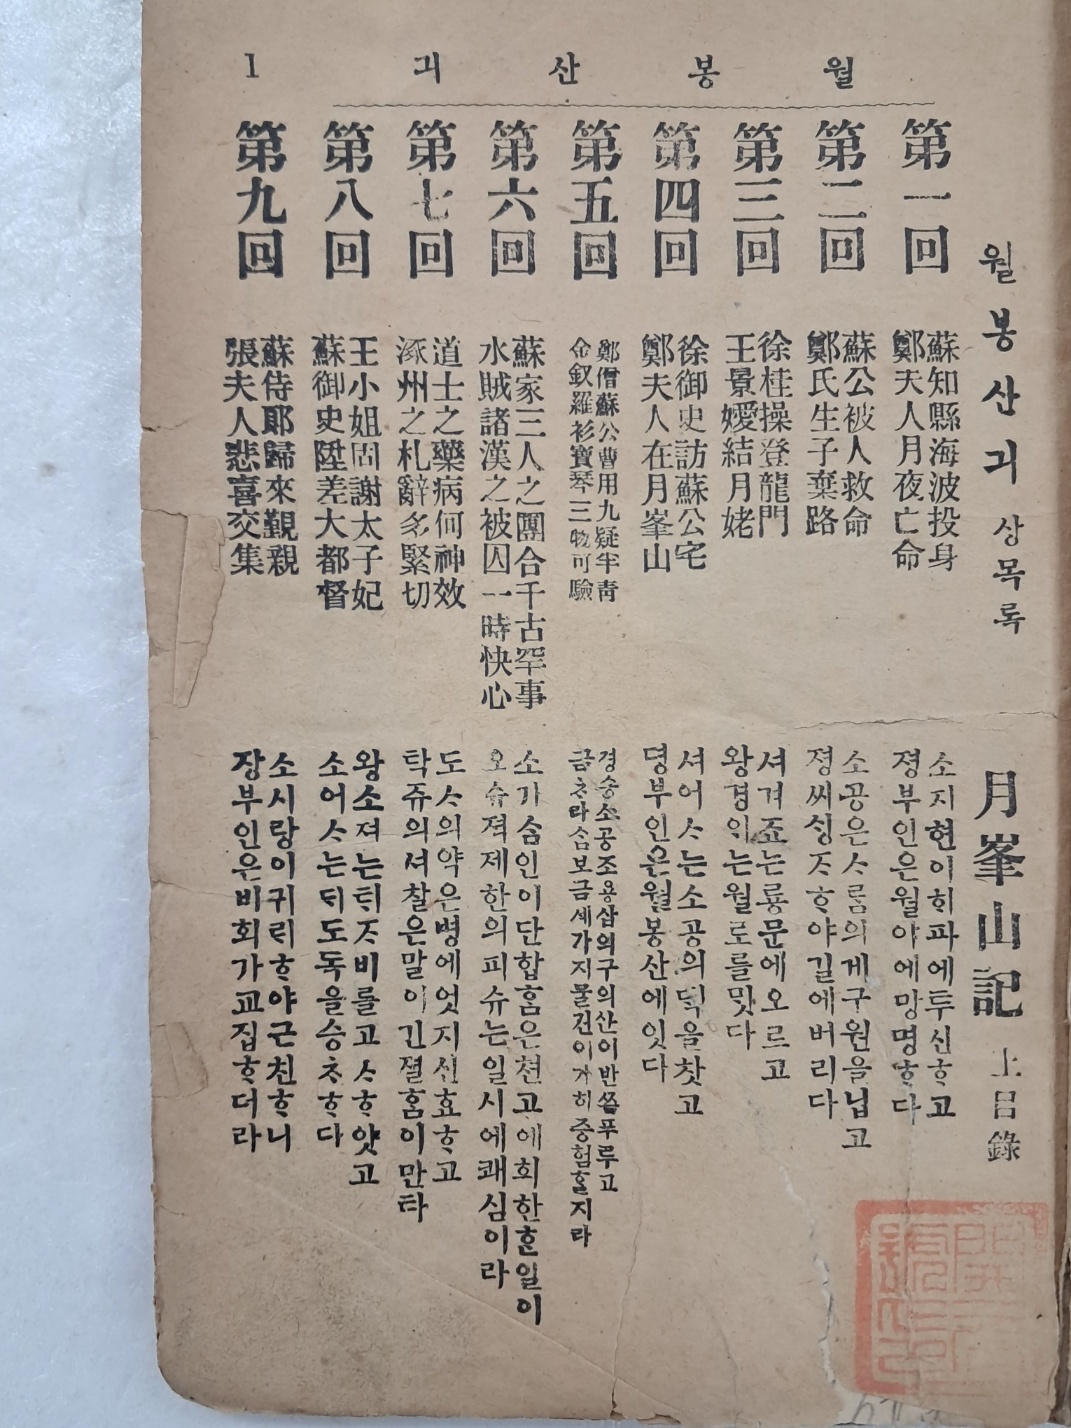 월봉산긔 1
월봉산긔 상목록
月峯山記 上目錄
第一回
蘇知縣海波投身
鄭夫人月夜亡命
소지현이ᄒᆡ파에투신ᄒᆞ고
졍부인은월야에망명ᄒᆞ다
第二回
蘇公被人救命
鄭氏生子棄路
소공은ᄉᆞᄅᆞᆷ의게구원을닙고
졍씨ᄉᆡᆼᄌᆞᄒᆞ야길에버리다
第三回
徐桂操登龍門
王景嬡結月姥
셔계죠는룡문에오르고
왕경ᄋᆡ는월로를ᄆᆡᆺ다
第四回
徐御史訪蘇公宅
鄭夫人在月峯山
셔어ᄉᆞ는소공의ᄃᆡᆨ을찻고
뎡부인은월봉산에잇다
第五回
鄭僧蘇公曹用九疑半靑
金釵羅衫寶琴三物可驗
경승소공조용삼의구의산이반쯤푸루고
금ᄎᆡ라삼보금세가지물건이가히증험ᄒᆞᆯ지라
第六回
蘇家三人之團合千古罕事
水賊諸漢之被囚一時快心
소가ᄉᆞᆷ인이단합ᄒᆞᆷ은쳔고에희한ᄒᆞᆫ일이
오슈젹제한의피슈는일시에쾌심이라
第七回
道士之藥病何神效
涿州之札辭多緊切
도ᄉᆞ의약은병에엇지신효ᄒᆞ고
탁쥬의셔찰은말이긴졀ᄒᆞᆷ이만타
第八回
王小姐回謝太子妃
蘇御史陞差大都督
왕소져는ᄐᆡᄌᆞ비를고ᄉᆞᄒᆞ얏고
소어ᄉᆞ는ᄃᆡ도독을승ᄎᆞᄒᆞ다
第九回
蘇侍郞歸來覲親
張夫人悲喜交集
소시랑이귀ᄅᆡᄒᆞ야근친ᄒᆞ니
장부인은비회가교집ᄒᆞ더라